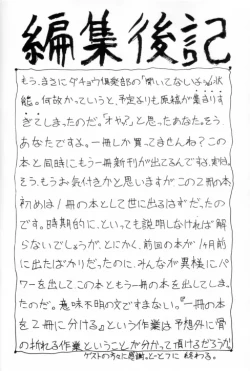 編集後記
もう、まさにダチョウ倶楽部の「聞いてないよ」状
態。何故かっていうと、予定よりも原稿が集まりす
ぎてしまったのだ。「オヤ?」と思ったあなた。そう
あなたですよ。一冊しか買ってませんね?この
本と同時にもう一冊新刊が出てるんですよ。実は。
そう、もうお気付きかと思いますがこの2冊の本、
初めは1冊の本として世に出るはずだったの
です。時期的に、といっても説明しなければ解
らないでしょうが、とにかく、前回の本が1ヶ月前
に出たばかりだったのに、みんなが異様にパ
ワーを出してこの本ともう一冊の本を出してしまっ
たのだ。意味不明の文ですまない。『一冊の本
を2冊に分ける』という作業は予想外に骨
の折れる作業ということが分かって頂けるだろうか
ゲストの方々に感謝。とーとつに 終わる。